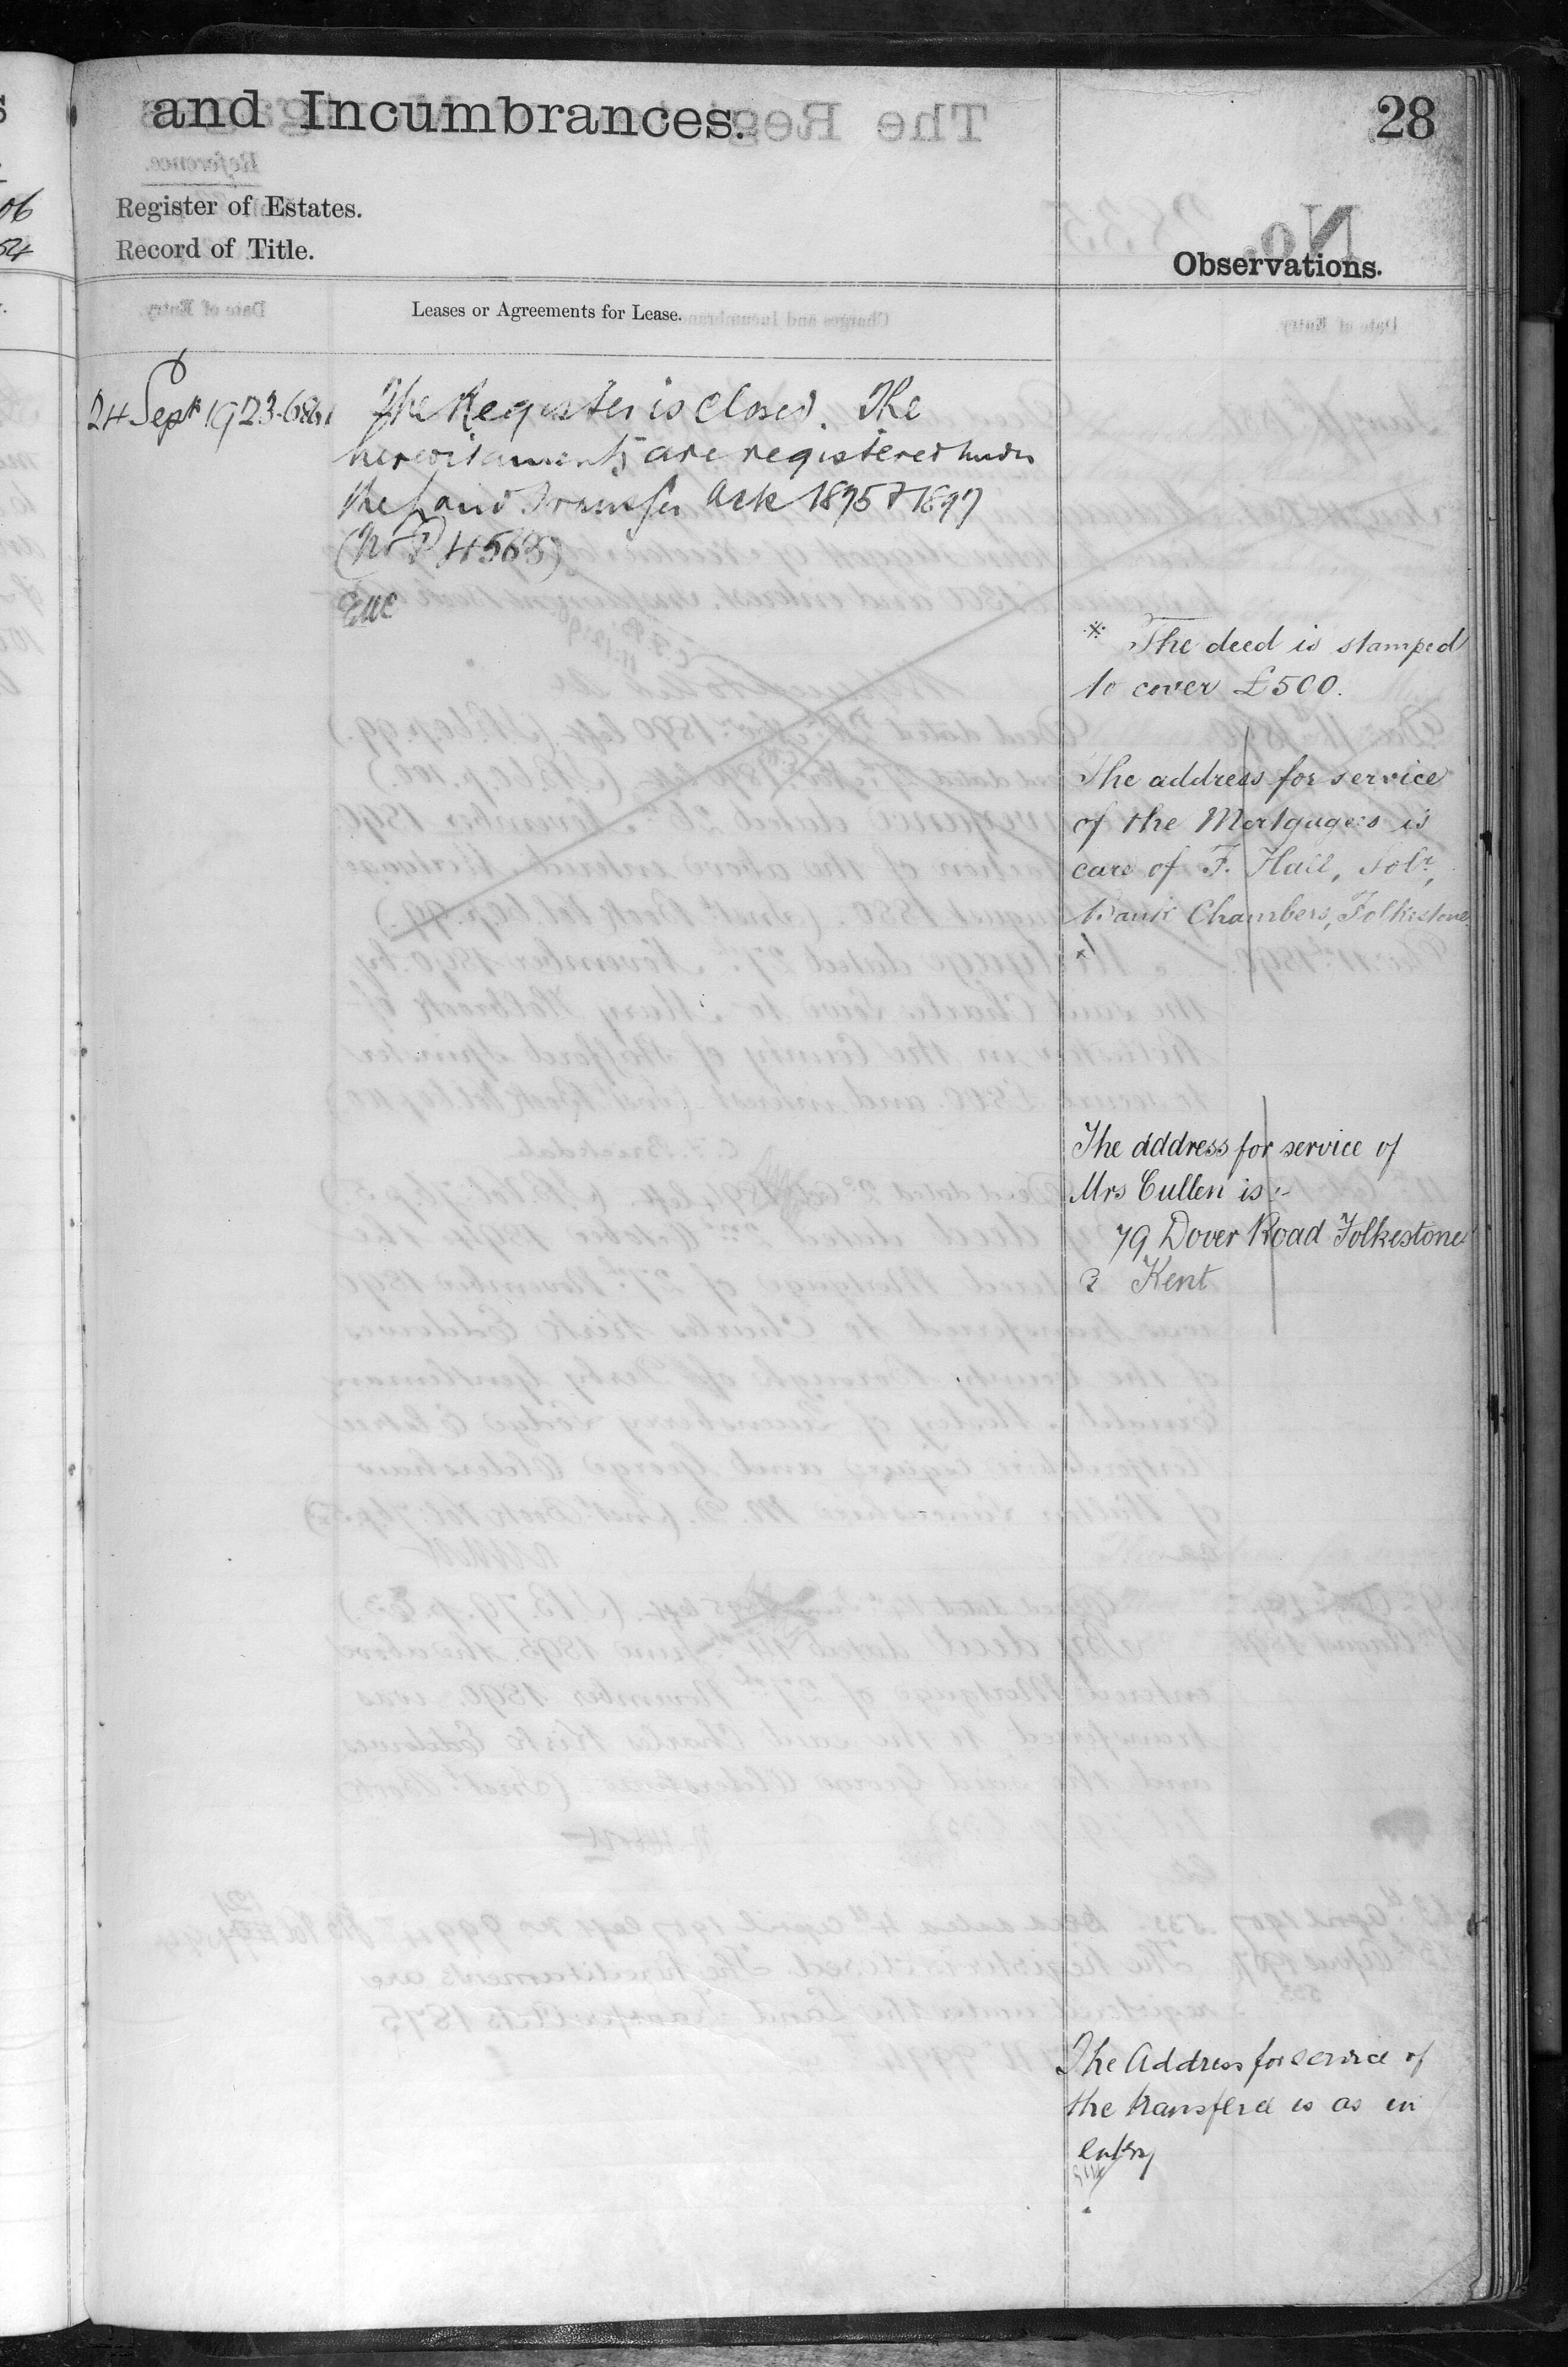 and Incumbrances.
28
Register of Estates.
Record of Title.
Observations.
Leases or Agreements for Lease.
24 Sept 1923.
The Register is closed. The
hereditaments are registered under
the Land Transfer Acts 1875 & 1897
(No P 4568)
* The deed is stamped
to cover £500.
The address for service
of the Mortgagees is
care of F. Hall, Solr,
Bank Chambers, Folkestone
The address for service of
Mrs Cullen is :-
79 Dover Road Folkestone
Kent
The Address for service of
the transferee is as in
entry